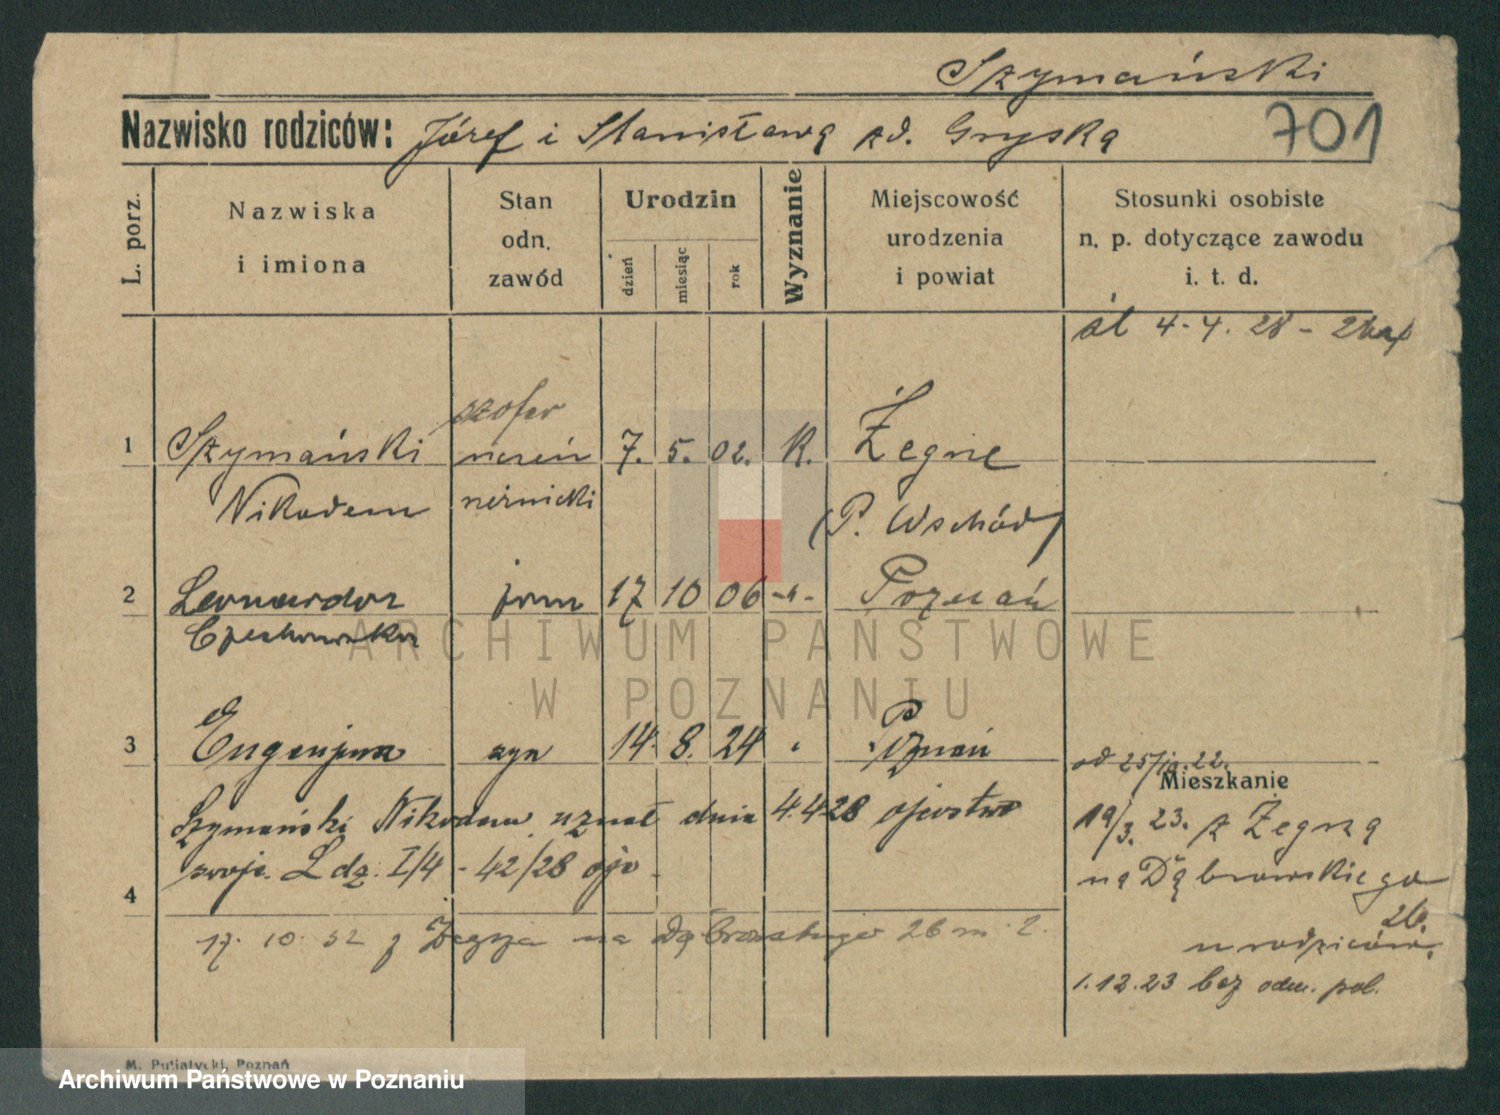 Szymański
Nazwisko rodziców: Józef i Stanisława zd. Gryska
701
L. porz.
Nazwiska
i imiona
Stan
odn.
zawód
Urodzin
dzień
miesiąc
rok
Wyznanie
Miejscowość
urodzenia
i powiat
Stosunki osobiste
n. p. dotyczące zawodu
i. t. d.
śl 4-4. 28 -
szofer
1 Szymański uczeń 7. 5. 02. K. Żegrze
Nikodem (P. Wschód)
2 Leonarda żona 17 10 06 -"- Poznań
Czechowska
3 Eugenjusz syn 14. 8. 24 " Poznań
od 25/10. 22.
Mieszkanie
Szymański Nikodem uznał dnia 4.4 28 ojcostwo
19/3. 23. z Żegrza
swoje. L dz. I/4 - 42/28
na Dąbrowskiego
26.
4
17. 10. 32 z Żegrza na Dąbrowskiego 26 m. 2.
u rodziców.
1.12.23 bez odm. pob.
M. Putiatycki, Poznań
ARCHIWUM PAŃSTWOWE
W POZNANIU
Archiwum Państwowe w Poznaniu